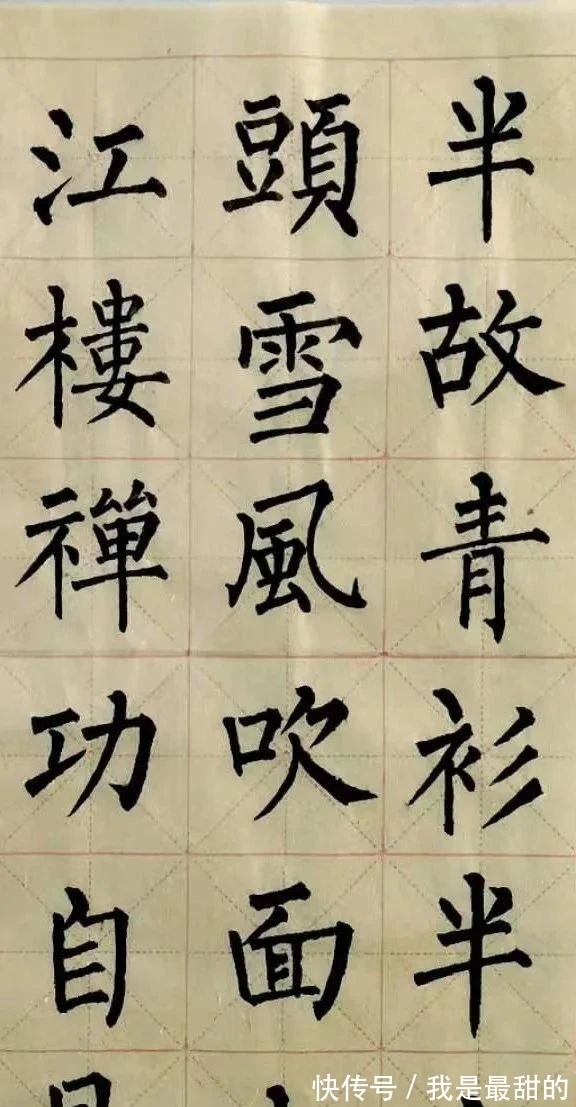 半故青衫半
頭雪風吹面
江樓禪功自
快传号/我是最甜的